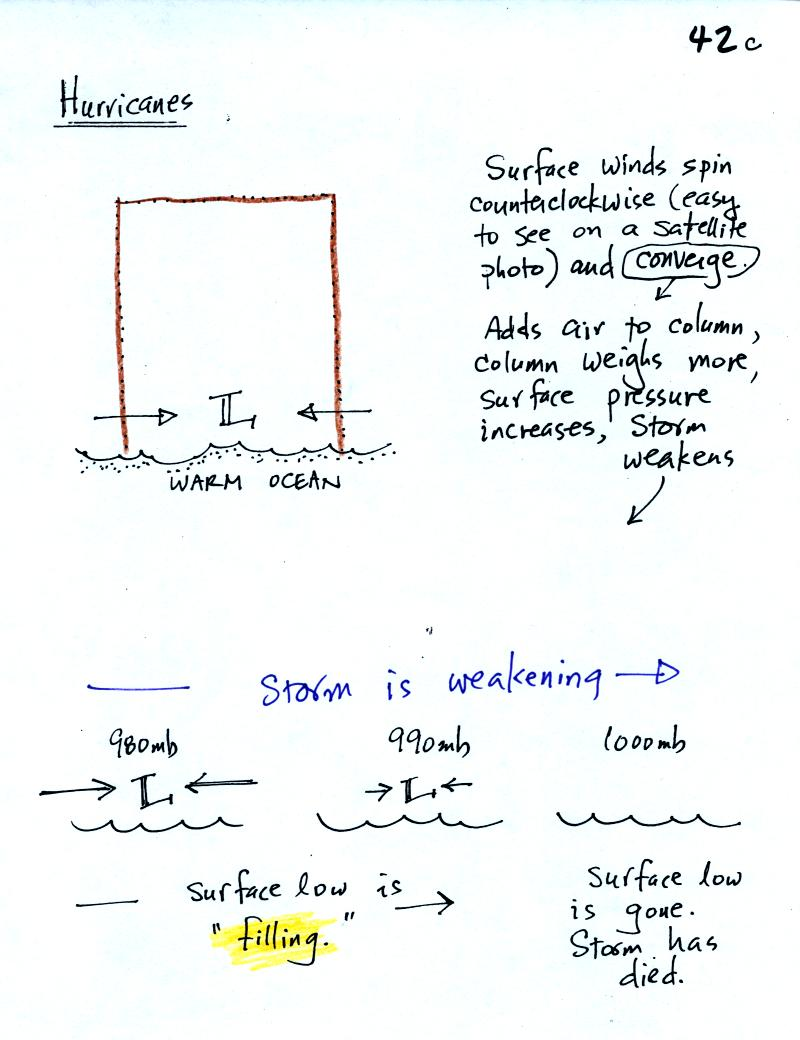 42c
Hurricanes
Surface winds spin
counterclockwise (easy
to see on a satellite
photo) and converge.
Adds air to column,
column weighs more,
surface pressure
increases, Storm
weakens
L
WARM OCEAN
Storm is weakening
980mb
990mb
1000mb
L
L
Surface low is
"filling."
Surface low
is gone.
Storm has
died.